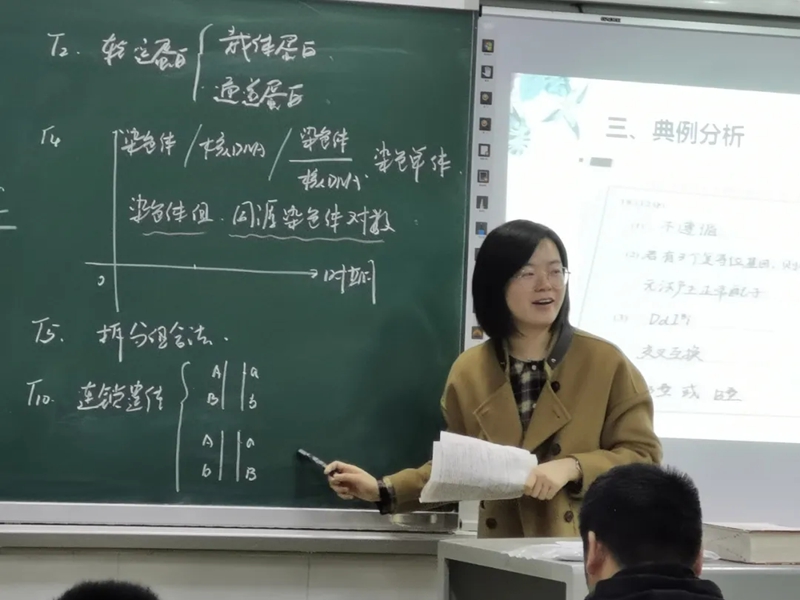 T2. 转运蛋白 载体蛋白.
通道蛋白.
T4 染色体/核DNA/染色体/核DNA 染色单体.
染色体组. 同源染色体对数.
0 时期
T5. 拆分组合法.
T10. 连锁遗传 A a
B b
A a
b B
三、典例分析
(1) 不遵循
(3)
交叉互换
或